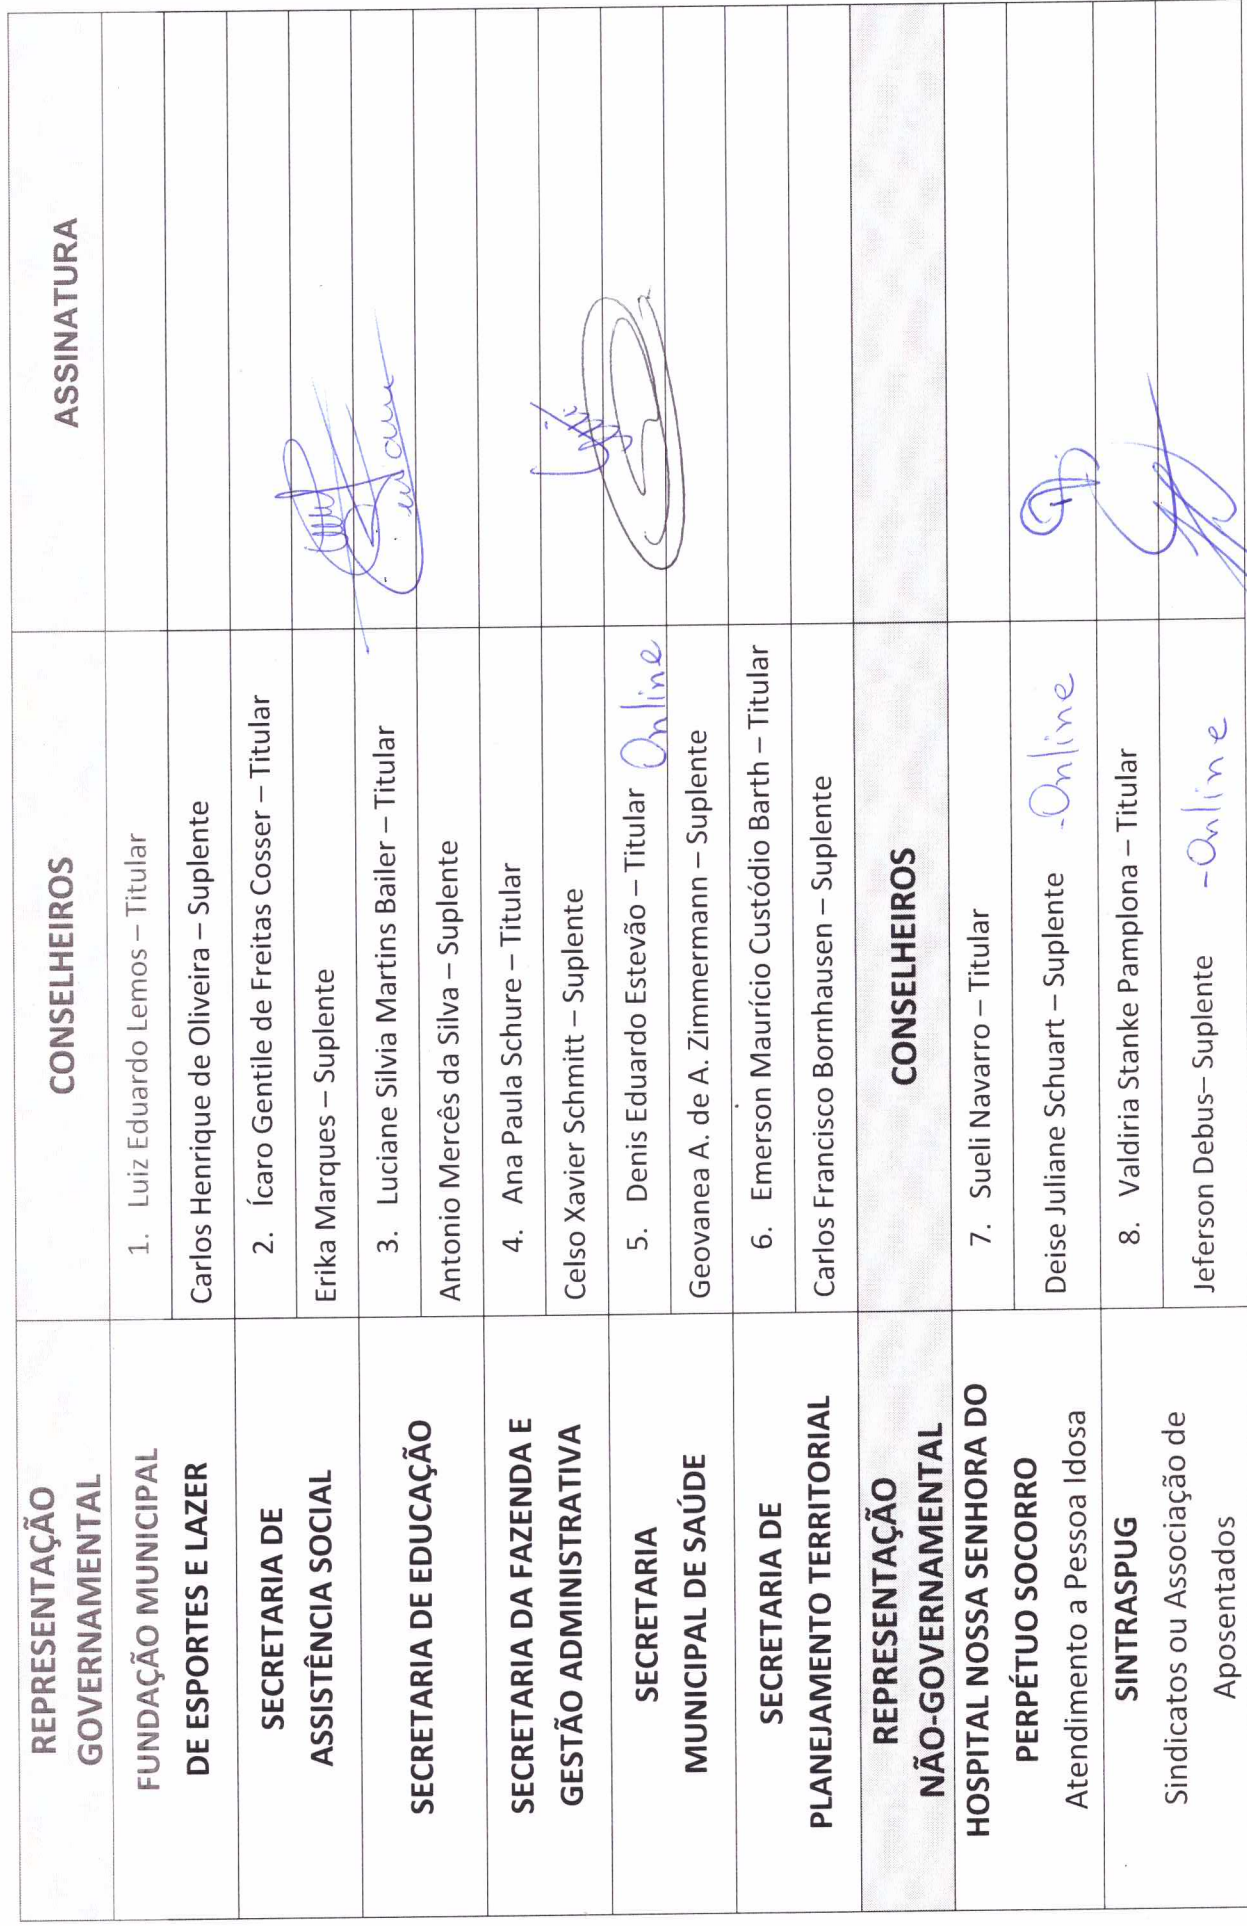 REPRESENTAÇÃO
GOVERNAMENTAL
CONSELHEIROS
ASSINATURA
FUNDAÇÃO MUNICIPAL
DE ESPORTES E LAZER
1. Luiz Eduardo Lemos – Titular
Carlos Henrique de Oliveira – Suplente
SECRETARIA DE
ASSISTÊNCIA SOCIAL
2. Ícaro Gentile de Freitas Cosser – Titular
Erika Marques – Suplente
SECRETARIA DE EDUCAÇÃO
3. Luciane Silvia Martins Bailer – Titular
Antonio Mercês da Silva – Suplente
SECRETARIA DA FAZENDA E
GESTÃO ADMINISTRATIVA
4. Ana Paula Schure – Titular
Celso Xavier Schmitt – Suplente
SECRETARIA
MUNICIPAL DE SAÚDE
5. Denis Eduardo Estevão – Titular Online
Geovanea A. de A. Zimmermann – Suplente
SECRETARIA DE
PLANEJAMENTO TERRITORIAL
6. Emerson Maurício Custódio Barth – Titular
Carlos Francisco Bornhausen – Suplente
REPRESENTAÇÃO
NÃO-GOVERNAMENTAL
CONSELHEIROS
HOSPITAL NOSSA SENHORA DO
PERPÉTUO SOCORRO
Atendimento a Pessoa Idosa
7. Sueli Navarro – Titular
Deise Juliane Schuart – Suplente - Online
SINTRASPUG
Sindicatos ou Associação de
Aposentados
8. Valdiria Stanke Pamplona – Titular
Jeferson Debus– Suplente - Online